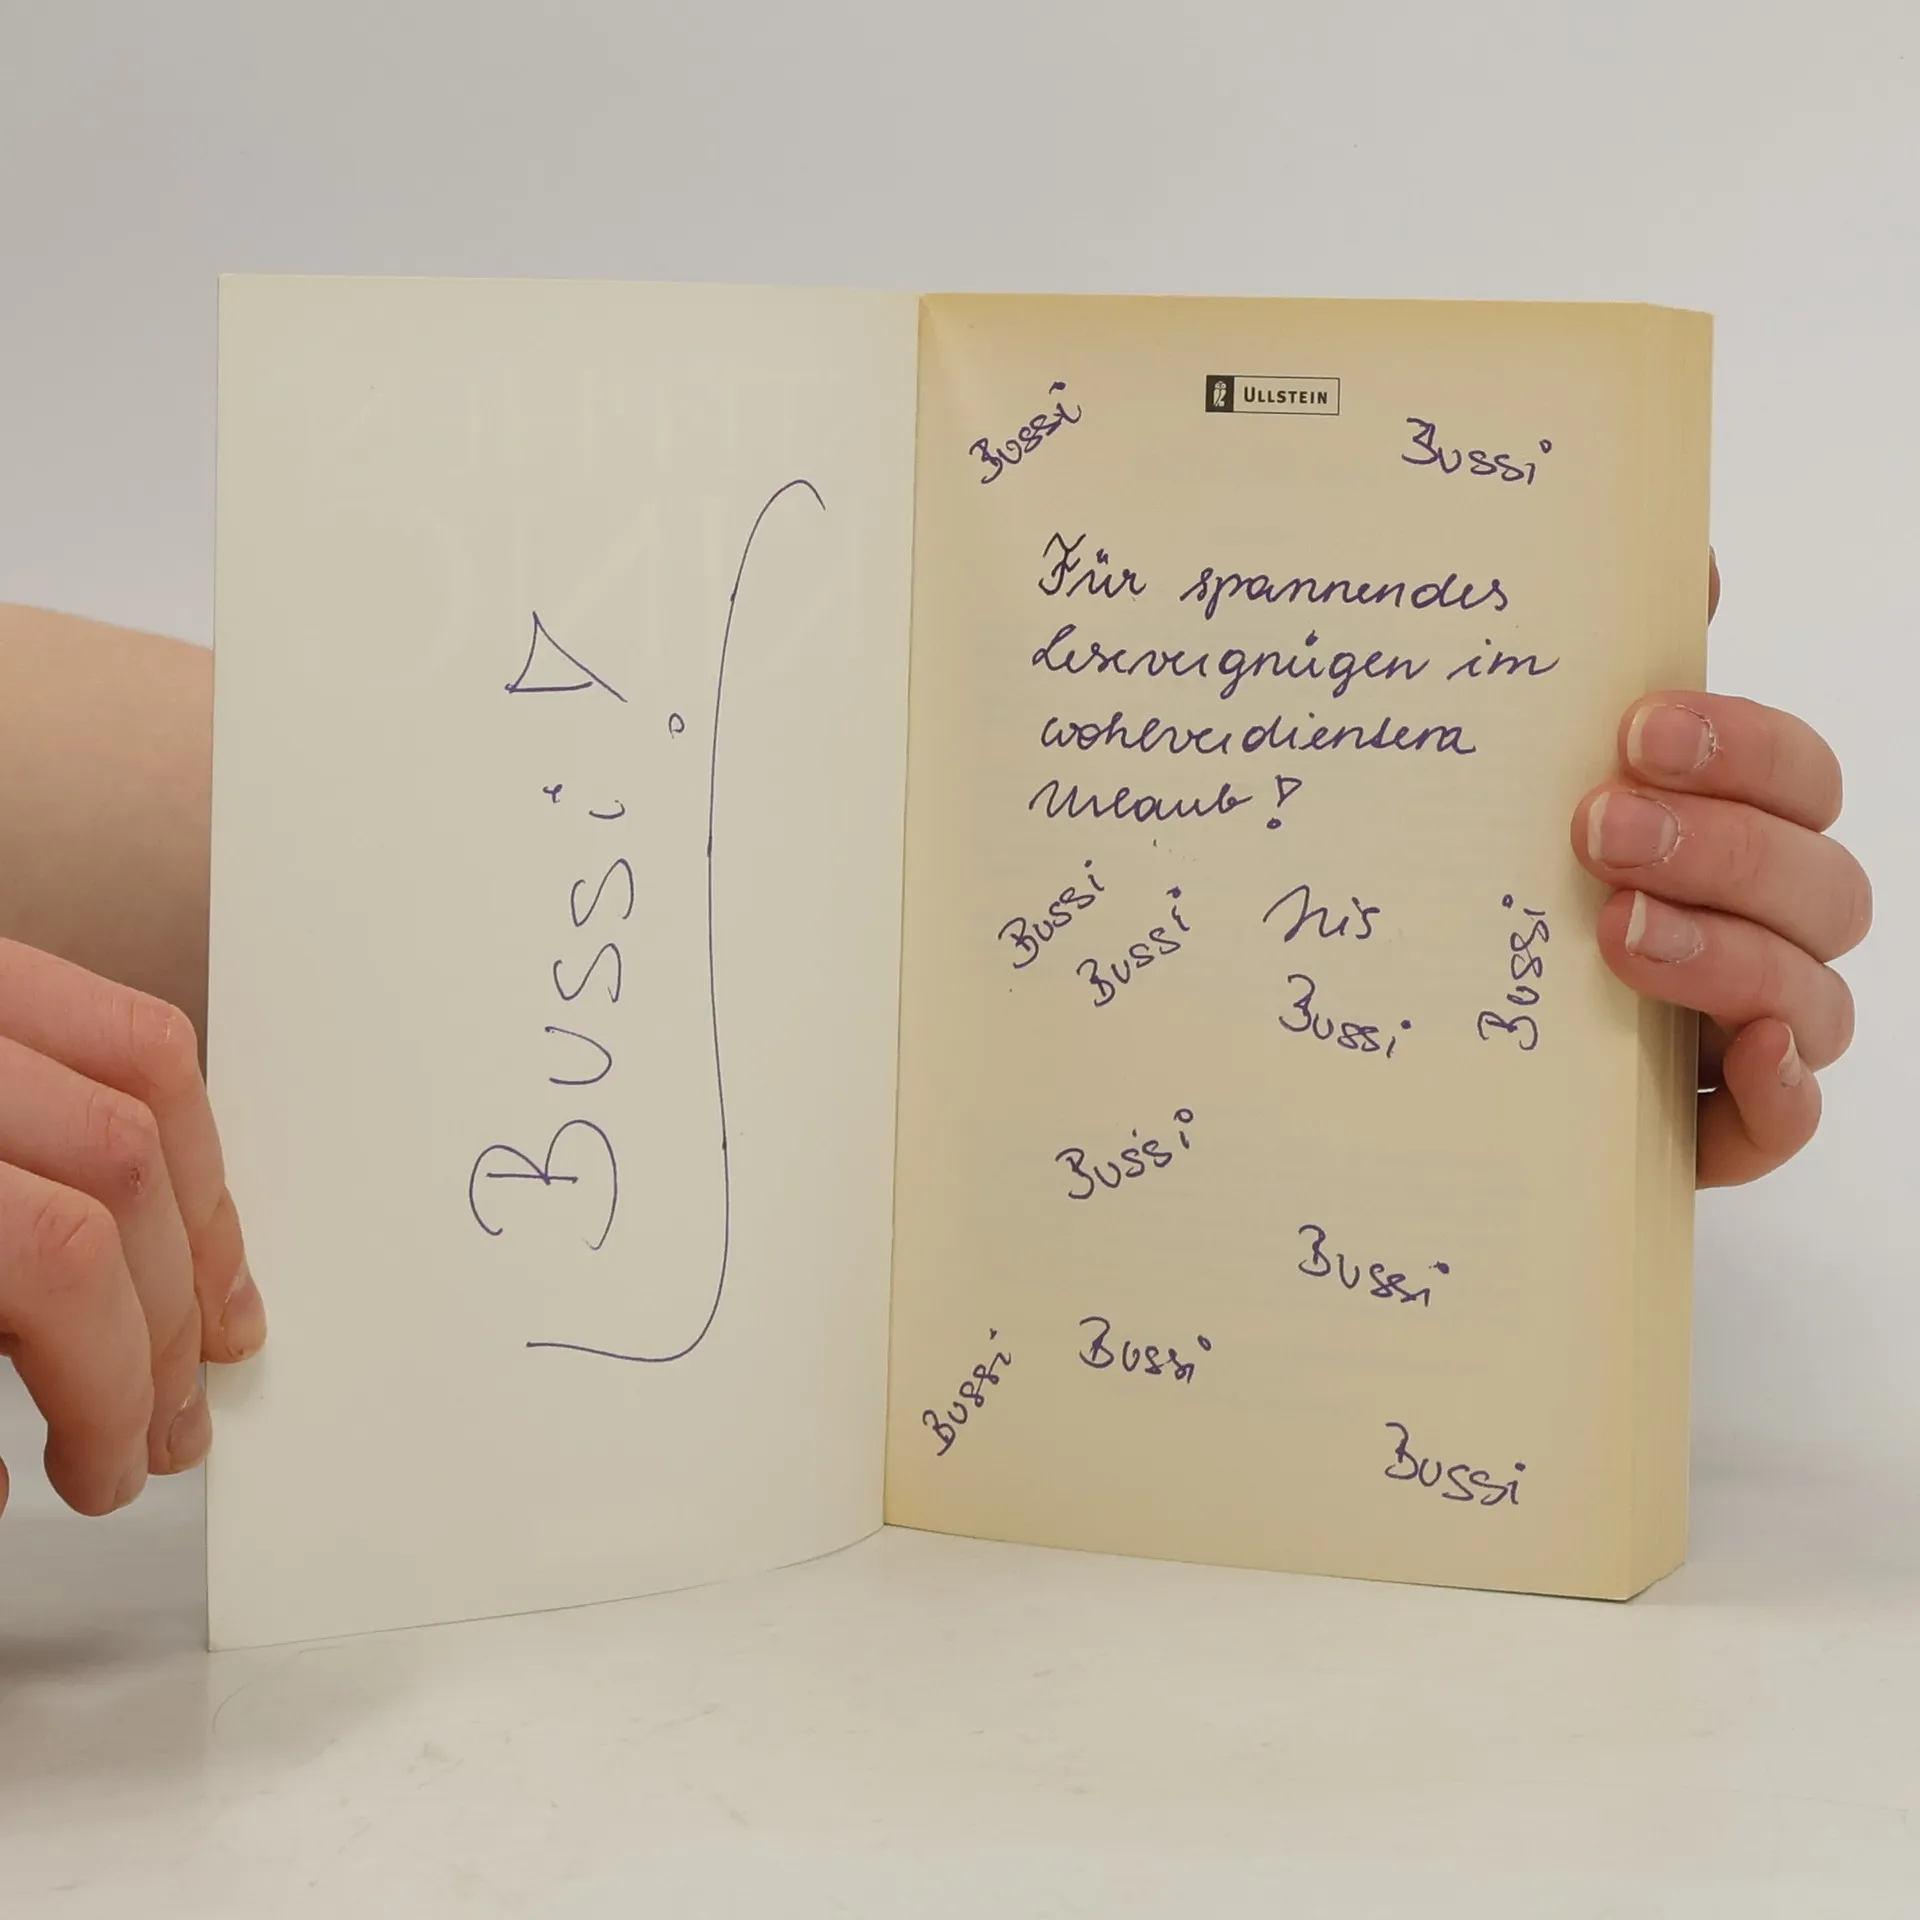 Bussi!
ULLSTEIN
Bussi
Bussi
Für spannendes
Lesevergnügen im
wohlverdienten
Urlaub!
Bussi
Bussi
Bussi
Bussi
Bussi
Bussi
Bussi
Bussi
Bussi